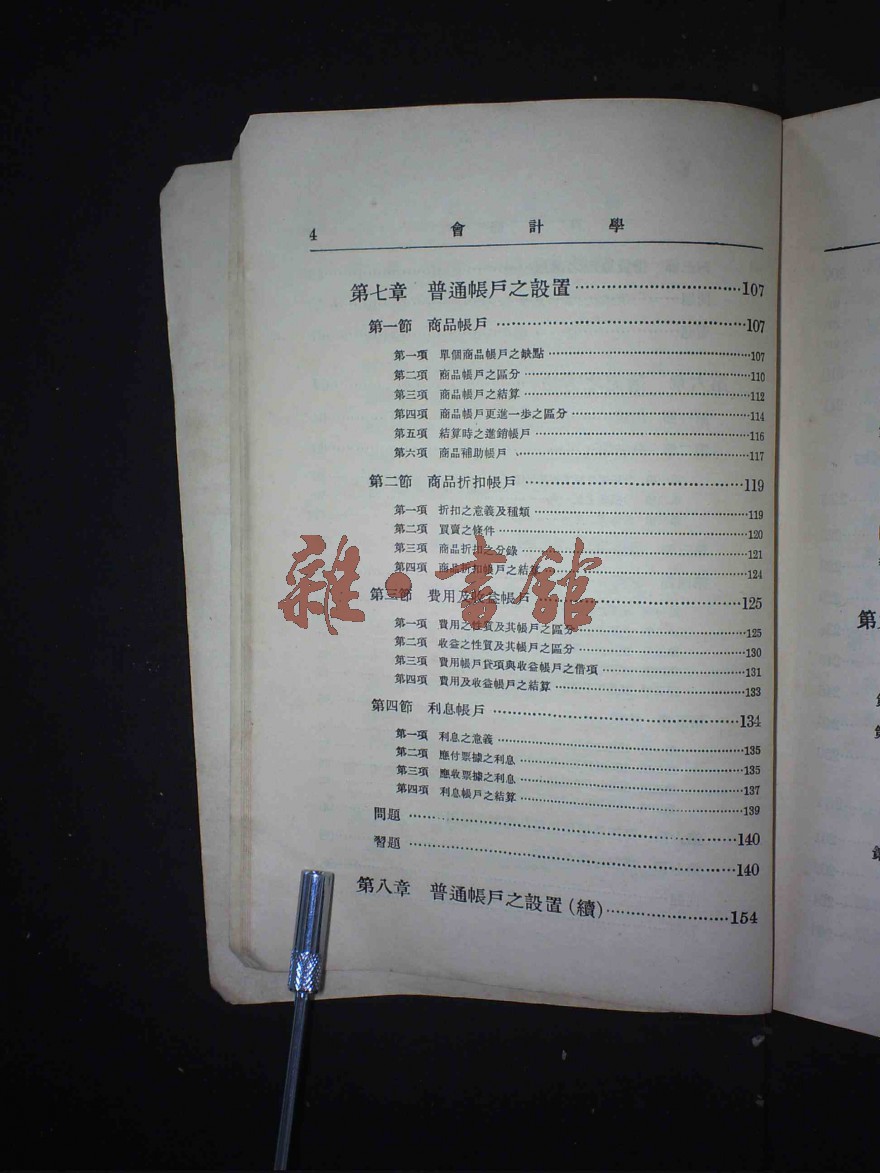 4 會計學
第七章 普通帳戶之設置……107
第一節 商品帳戶……107
第一項 單個商品帳戶之缺點……107
第二項 商品帳戶之區分……110
第三項 商品帳戶之結算……112
第四項 商品帳戶更進一步之區分……114
第五項 結算時之進銷帳戶……116
第六項 商品補助帳戶……117
第二節 商品折扣帳戶……119
第一項 折扣之意義及種類……119
第二項 買賣之條件……120
第三項 商品折扣之分錄……121
第四項 商品折扣帳戶之結算……124
第三節 費用及收益帳戶……125
第一項 費用之性質及其帳戶之區分……125
第二項 收益之性質及其帳戶之區分……130
第三項 費用帳戶貸項與收益帳戶之借項……131
第四項 費用及收益帳戶之結算……133
第四節 利息帳戶……134
第一項 利息之意義……135
第二項 應付票據之利息……135
第三項 應收票據之利息……137
第四項 利息帳戶之結算……139
問題……140
習題……140
第八章 普通帳戶之設置(續)……154
雜·書館